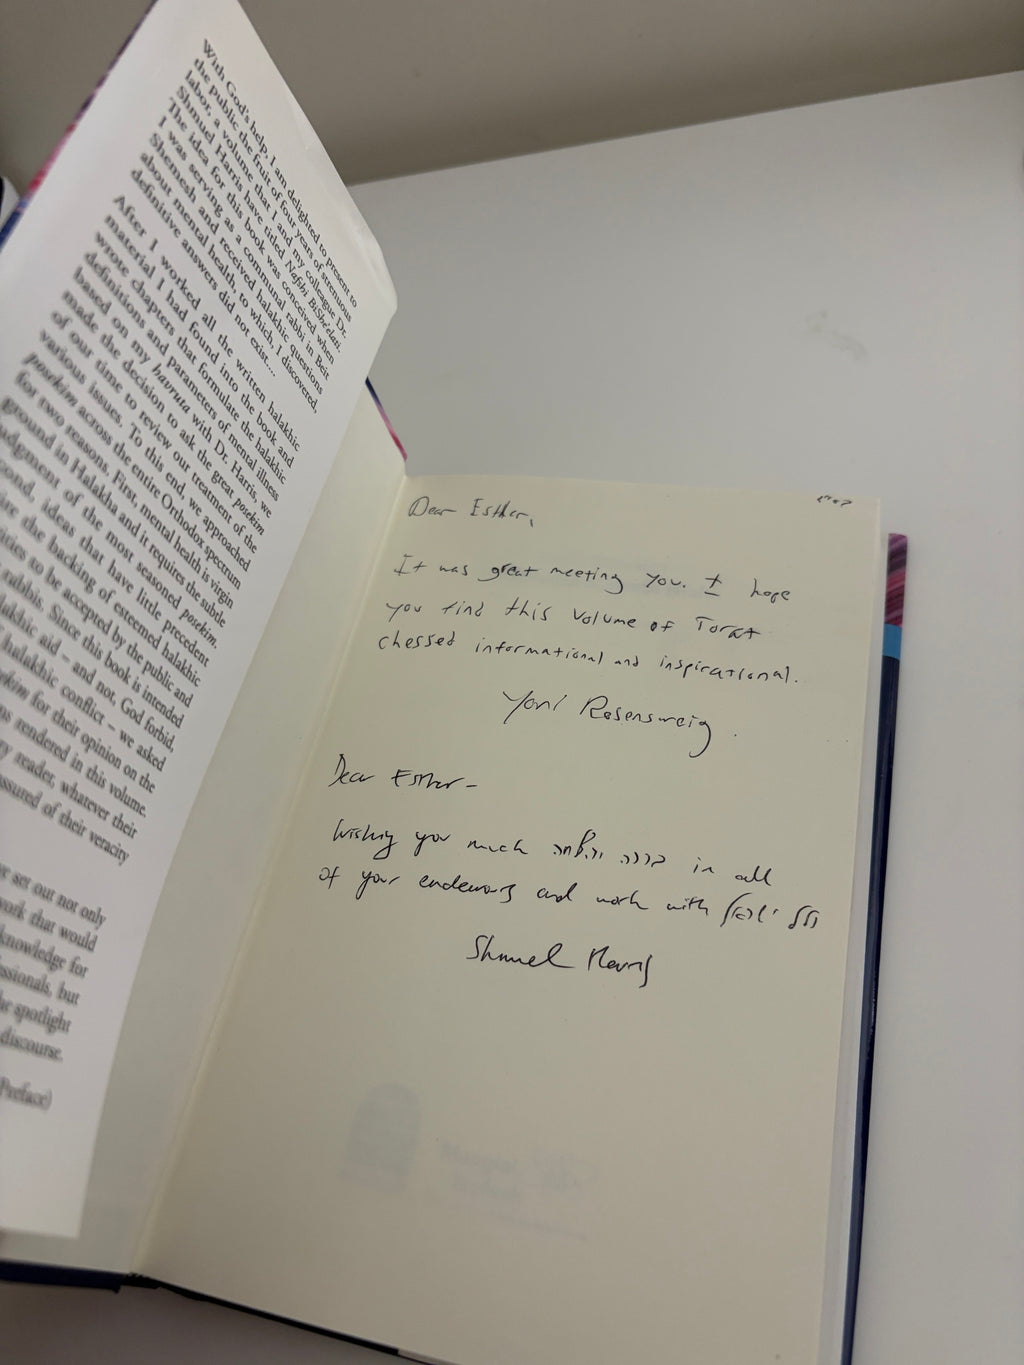 With God's help, I am delighted to present to
the public the fruit of four years of strenuous
labor, a volume that I and my colleague Dr.
Shmuel Harris have titled Nafshi BiShe'elati.
The idea for this book was conceived when
I was serving as a communal rabbi in Beit
Shemesh and received halakhic questions
about mental health, to which, I discovered,
definitive answers did not exist....
After I worked all the written halakhic
material I had found into the book and
wrote chapters that formulate the halakhic
definitions and parameters of mental illness
based on my havruta with Dr. Harris, we
made the decision to ask the great posekim
of our time to review our treatment of the
various issues. To this end, we approached
posekim across the entire Orthodox spectrum
for two reasons. First, mental health is virgin
ground in Halakha and it requires the subtle
judgment of the most seasoned posekim.
ideas that have little precedent
the backing of esteemed halakhic
to be accepted by the public and
rabbis. Since this book is intended
aid – and not, God forbid,
halakhic conflict – we asked
for their opinion on the
rendered in this volume.
reader, whatever their
assured of their veracity
set out not only
work that would
knowledge for
but
spotlight
discourse.
Preface)
Dear Esther,
It was great meeting you. I hope
you find this volume of Torat
chessed informational and inspirational.
Yoni Rosensweig
Dear Esther -
Wishing you much ברכה והצלחה in all
of your endeavors and work with כלל ישראל
Shmuel Harris